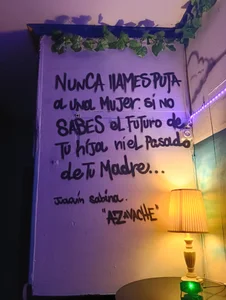 NUNCA llAMES PUTA
a UNA MUJER. si NO
SABES el FUTURO de
TU hija Ni el PASADO
de TU MADRE...
Joaquin Sabina.
"AZAVACHE"